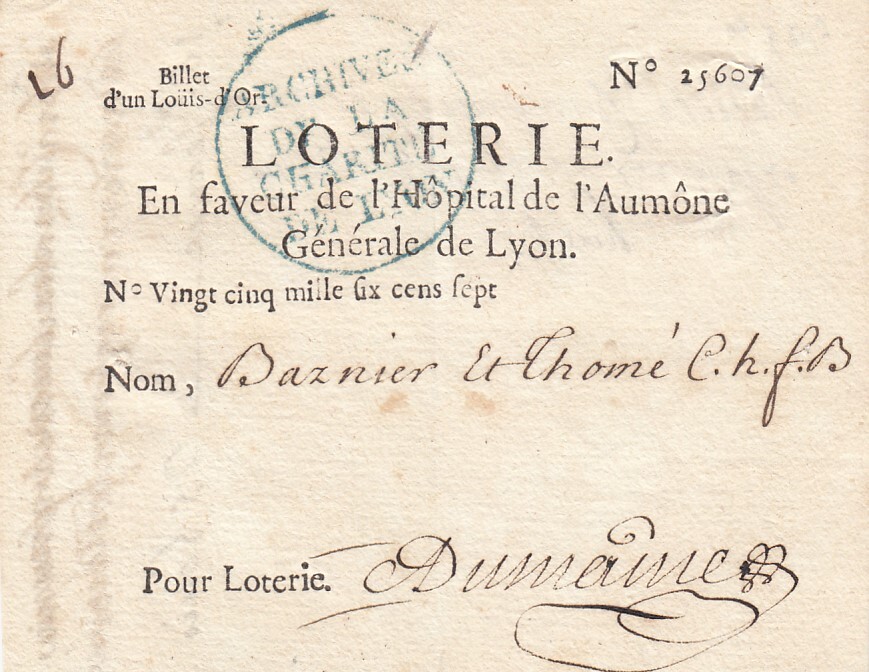 26
Billet
d'un Loüis-d'Or.
N° 25607
ARCHIVES
DE LA
CHARITÉ
DE LYON
LOTERIE.
En faveur de l'Hôpital de l'Aumône
Générale de Lyon.
N° Vingt cinq mille ſix cens ſept
Nom, Baznier Et Thomé C. h. f. B
Pour Loterie. Dumaine